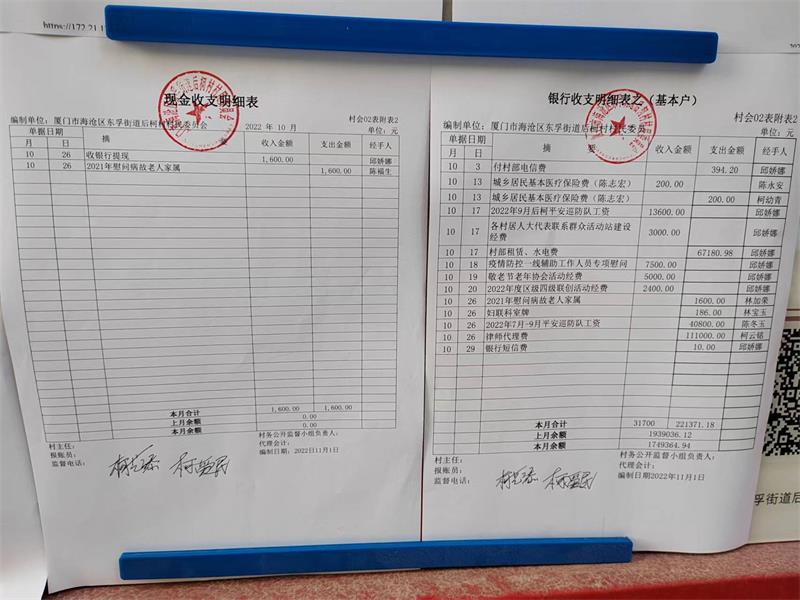 https://172.21.1
现金收支明细表
村会02表附表2
编制单位：厦门市海沧区东孚街道后柯村村民委员会 2022 年 10 月 单位：元
单据日期 摘 要 收入金额 支出金额 经手人
月 日
10 26 收银行提现 1,600.00 邱娇娜
10 26 2021年慰问病故老人家属 1,600.00 陈福生
本月合计 1,600.00 1,600.00
上月余额 0.00
本月余额 0.00
村主任： 村务公开监督小组负责人：
报账员： 代理会计：
监督电话： 编制日期：2022日11月1日
银行收支明细表之（基本户）
村会02表附表2
编制单位：厦门市海沧区东孚街道后柯村村民委员会 单位：元
单据日期 摘 要 收入金额 支出金额 经手人
月 日
10 3 付村部电信费 394.20 邱娇娜
10 13 城乡居民基本医疗保险费（陈志宏） 200.00 陈永安
10 13 城乡居民基本医疗保险费（陈志宏） 200.00 柯幼青
10 17 2022年9月后柯平安巡防队工资 13600.00 邱娇娜
10 17 各村居人大代表联系群众活动站建设经费 3000.00 邱娇娜
10 17 村部租赁、水电费 67180.98 邱娇娜
10 18 疫情防控一线辅助工作人员专项慰问 7500.00 邱娇娜
10 19 敬老节老年协会活动经费 5000.00 邱娇娜
10 20 2022年度区级四级联创活动经费 2400.00 邱娇娜
10 26 2021年慰问病故老人家属 1600.00 林加荣
10 26 妇联科室牌 186.00 林宝玉
10 26 2022年7月-9月平安巡防队工资 40800.00 陈冬玉
10 26 律师代理费 111000.00 柯云铭
10 29 银行短信费 10.00 邱娇娜
本月合计 31700 221371.18
上月余额 1939036.12
本月余额 1749364.94
村主任： 村务公开监督小组负责人：
报账员： 代理会计：
监督电话： 编制日期2022年11月1日
孚街道后